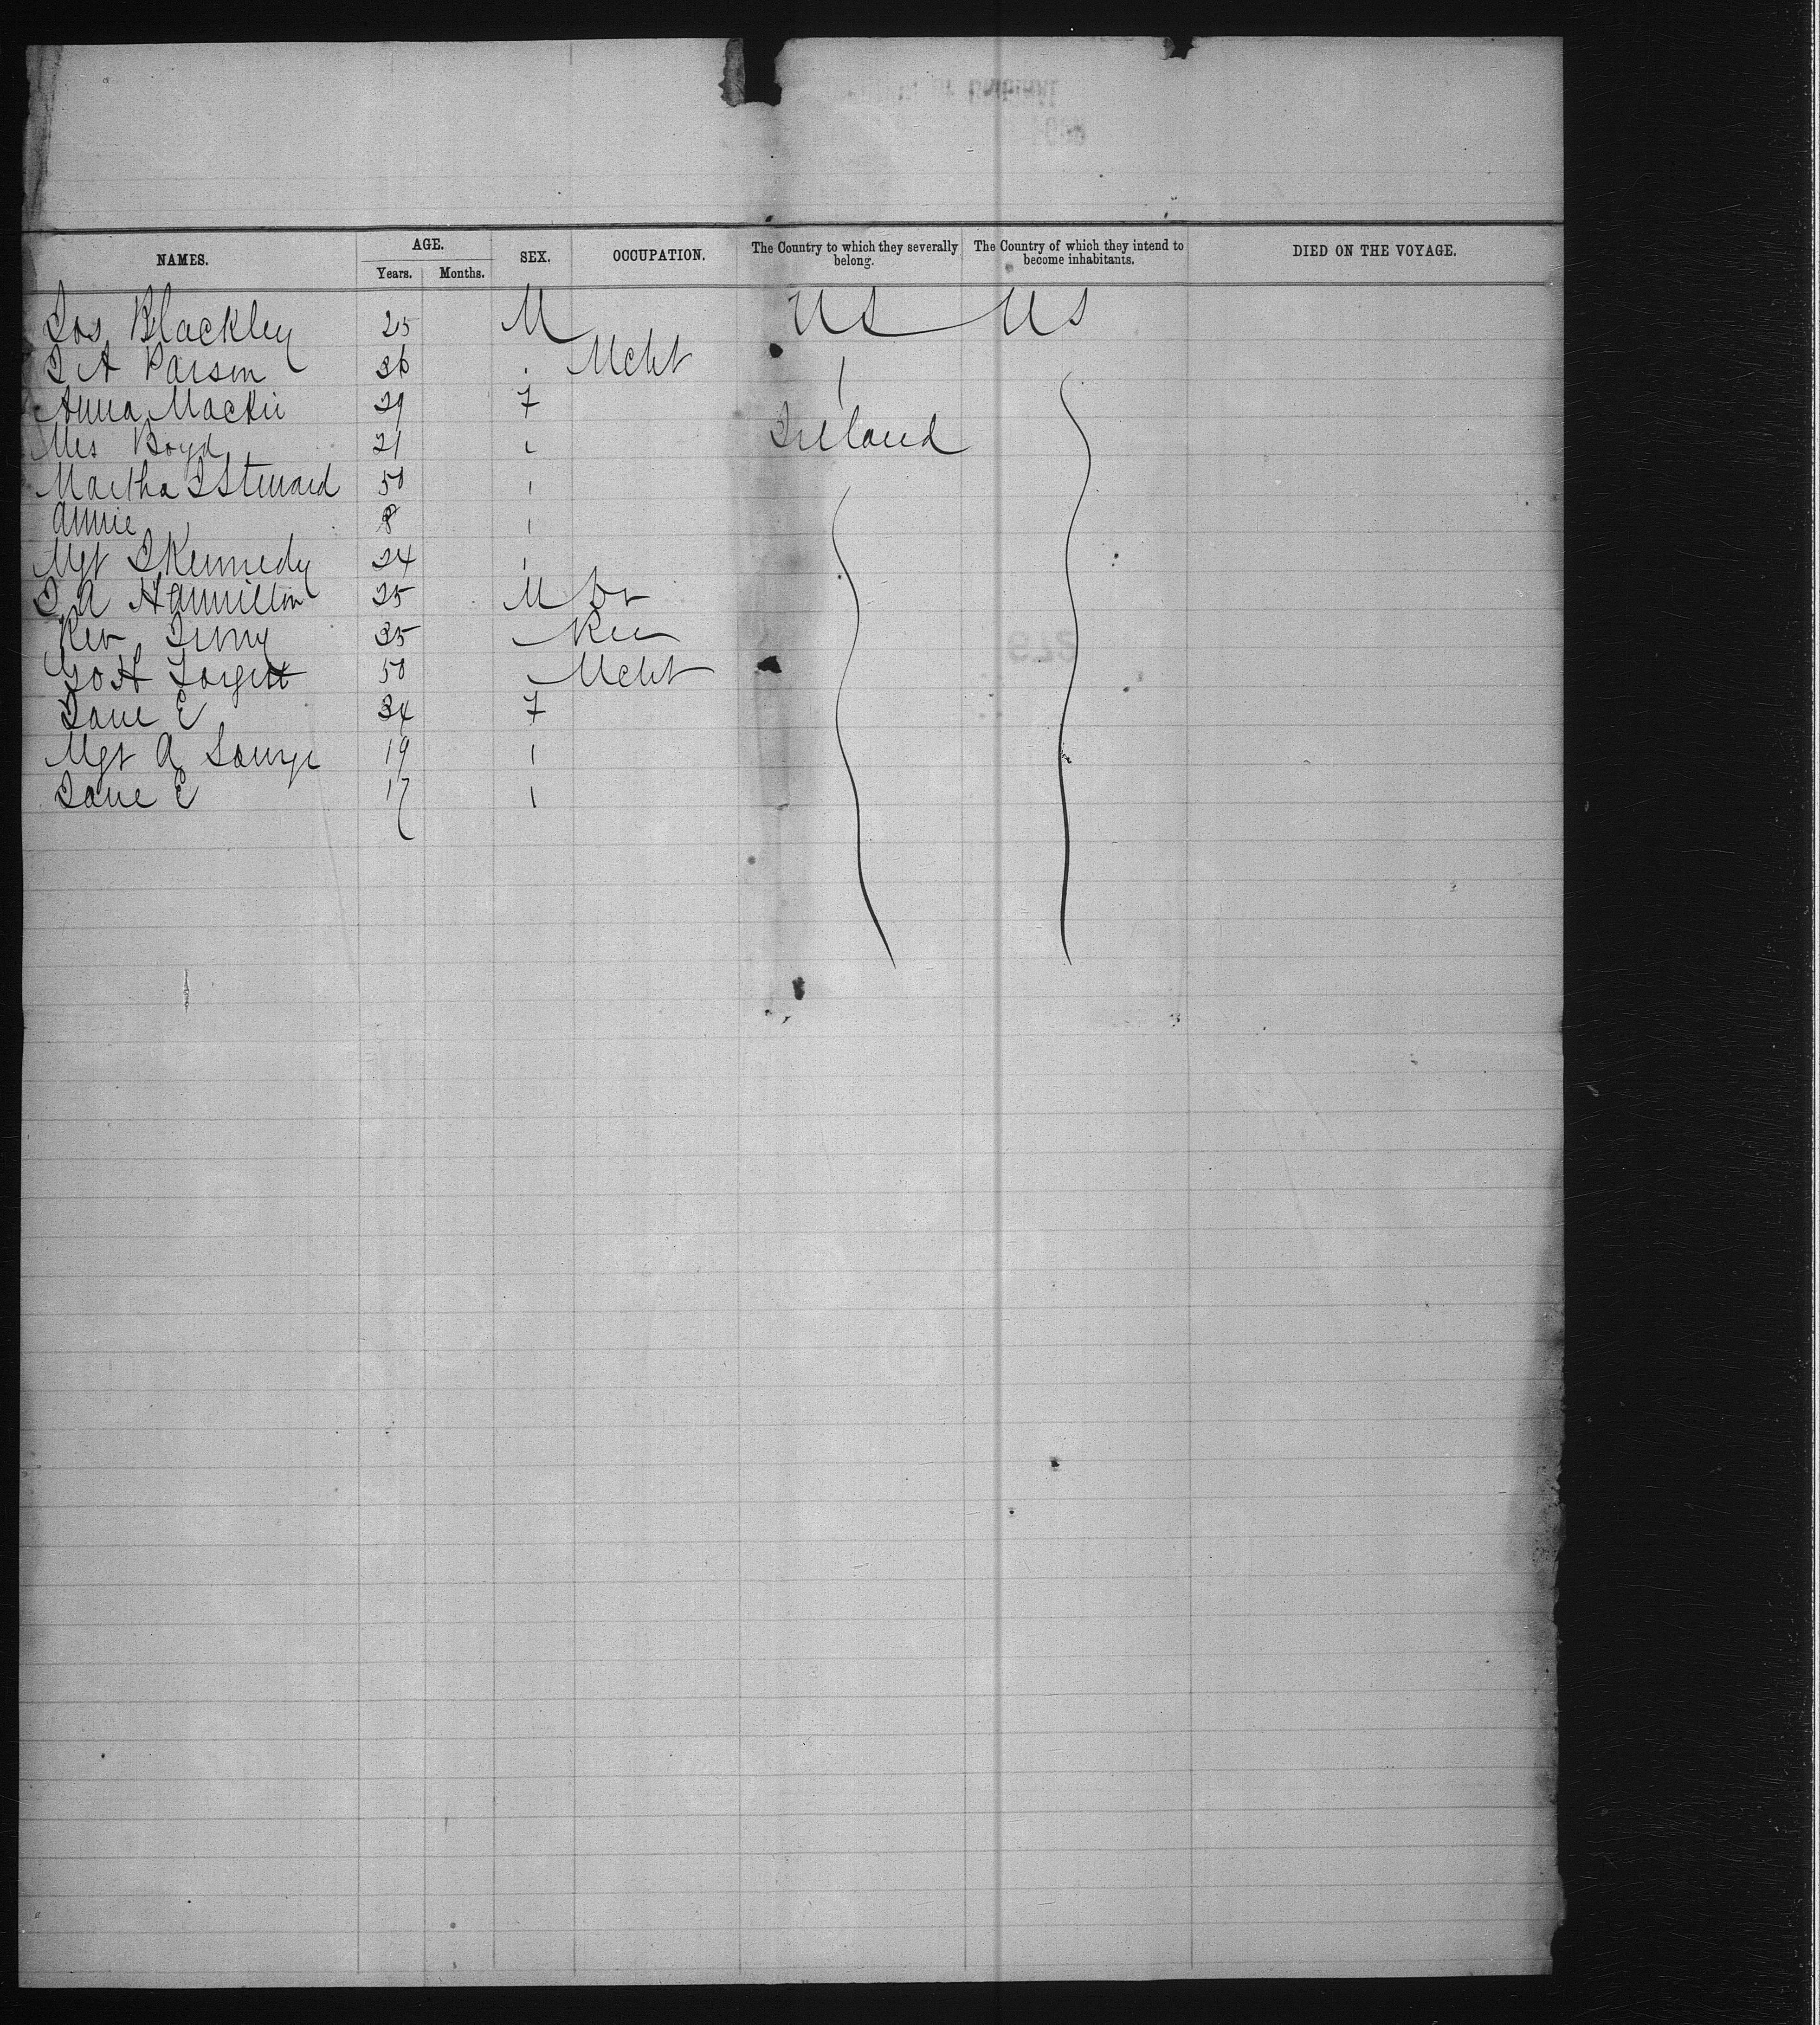 NAMES. AGE. SEX. OCCUPATION. The Country to which they severally belong. The Country of which they intend to become inhabitants. DIED ON THE VOYAGE.
Years. Months.
Jos Blackley 25 M US US
J A Parson 36 Mcht
Anna Mackie 29 F
Mrs Boyd 21 Ireland
Martha J Steward 50
Annie 8
Mgt J Kennedy 24
J A Hamilton 25 M Dr
Rev 35 Rev
50 Mcht
Jane E 34 F
Mgt A 19
Jane E 17